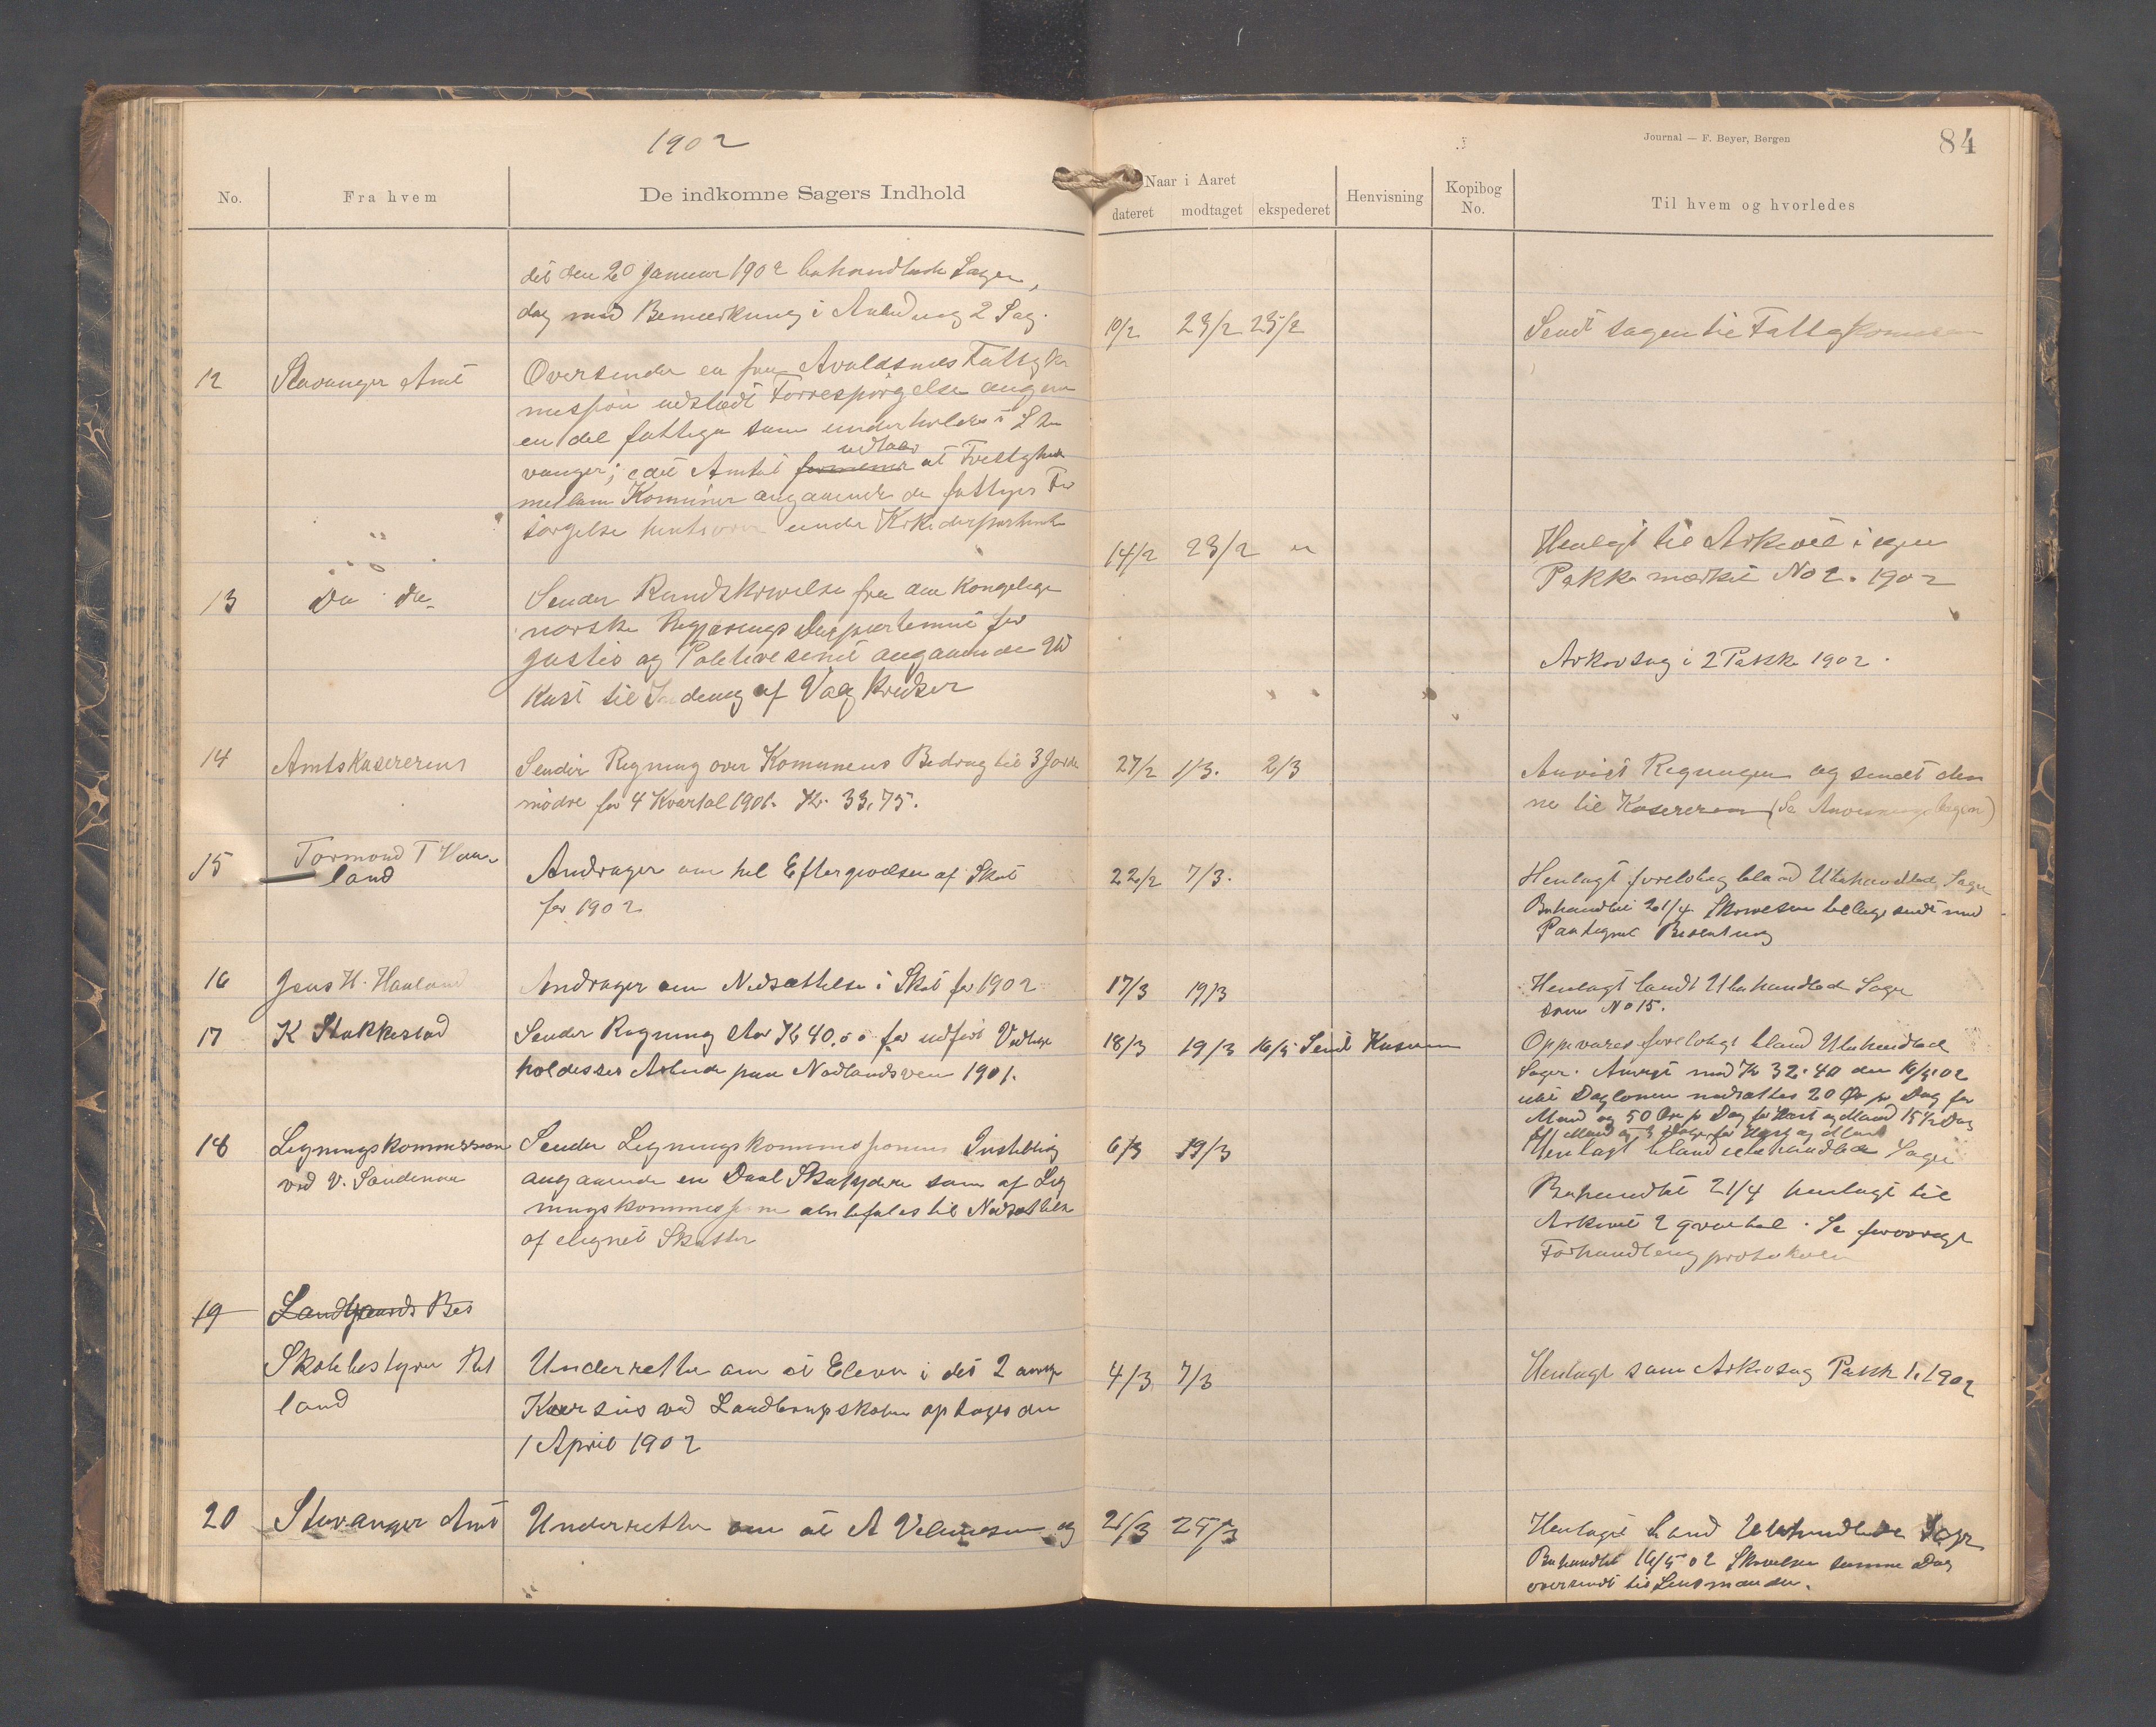 1902
Journal — F. Beyer, Bergen
84
No.
Fra hvem
De indkomne Sagers Indhold
Naar i Aaret
dateret
modtaget
ekspederet
Henvisning
Kopibog
No.
Til hvem og hvorledes
det den 20 Januar 1902 behandlede Sagen,
dog med Bemærkning i Anledning 2 Sag.
10/2 23/2 25/2
Sendt sagen til Fattigkommisen
12 Stavanger Amt
Oversender en fra Avaldsnes Fattigko
mission udstædt Forrespørgelse angaaen
en del fattige som underholdes i Sta
udtaler
vanger; idet Amtet formener at Tvistigheder
mellem Komuner angaaende de fattiges For
sørgelse under Kirkedepartementet
14/2 23/2 "
Henlagt til Arkivet i egen
Pakke mærket No 2. 1902
13 Do Do
Sender Rundskrivelse fra den Kongelige
norske Regjerings Departement for
Justis og Politivesenet angaaende Ud
kast til Inddeling af Valgkredser
Arkivsag i 2 Pakke 1902.
14 Amtskasererens
Sender Regning over Komunens Bedrag til 3 Jorde
mødre for 4 Kvartal 1901. Kr. 33,75.
27/2 1/3. 2/3
Anvist Regningen og sendt den
ne til Kasereren (Se Anvisningsbogen)
15 Tormond T Haa
land
Andrager om hel Eftergivelse af Skat
for 1902
22/2 7/3.
Henlagt foreløbig bland Ubehandlede Sager
Behandlet 21/4 Skrivelsen tilbage sendt med
Paategnet Beslutning
16 Jens H. Haaland
Andrager om Nedsættelse i Skat for 1902
17/3 19/3
Henlagt blandt Ubehandlede Sager
som No 15.
17 K Stakkestad
Sender Regning stor Kr 40.00 for udført Vedlige
holdelses Arbeide paa Nadlandsveien 1901.
18/3 19/3 16/5 Sendt Kaseren
Oppevares foreløbigt bland Ubehandlede
Sager. Anvist med Kr 32.40 den 16/5.02
idet Daglønnen nedsættes 20 Øre pr Dag for
Mand og 50 Øre pr Dag for Hest og Mand 15½ Dag
for Mand og 3 Dage for Hest og Mand
18 Legningskommissionen
ved V. Sandenaa
Sender Legningskommissionens Instilling
angaaende en Deel Skatydere som af Lig
ningskommissionen anbefales til Nedsættelse
af elignet Skatter
6/3 19/3
Henlagt bland ubehandlede Sager
Behandlet 21/4 henlagt til
Arkivet 2 qvartal. Se forøvrigt
Forhandlingsprotokolen
19 Landbrands Bes
Skolebestyrer Ret
land
Underretter om at Elever i det 2 aarige
Kursus ved Landbrugsskolen optages den
1 April 1902
4/3 7/3
Henlagt som Arkivsag Pakke 1. 1902
20 Stavanger Amt
Underretter om at A Velnesen og
21/3 25/3
Henlagt bland Ubehandlede Sager
Behandlet 16/5 02 Skrivelsen samme Dag
oversendt til Lensmanden.